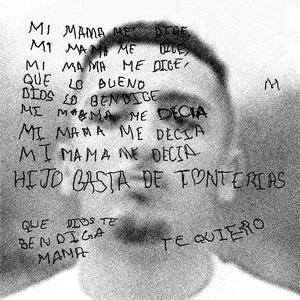 MI MAMA ME DICE,
MI MAMA ME DICE,
MI MAMA ME DICE,
QUE LO BUENO
DIOS LO BENDICE
MI MAMA ME DECIA
MI MAMA ME DECIA
MI MAMA ME DECIA
HIJO GASTA DE TONTERIAS
QUE DIOS TE
BENDIGA
MAMA
TE QUIERO
M